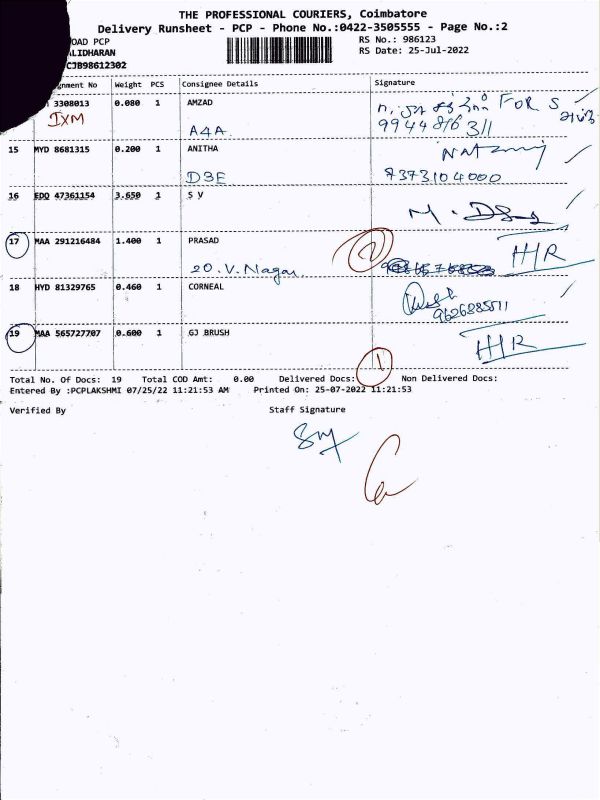 THE PROFESSIONAL COURIERS, Coimbatore
Delivery Runsheet - PCP - Phone No.:0422-3505555 - Page No.:2
OAD PCP RS No.: 986123
ALIDHARAN RS Date: 25-Jul-2022
CJB98612302
gnment No Weight PCS Consignee Details Signature
3308013 0.080 1 AMZAD FOR S
IXM A4A 9944816311
15 MYD 8681315 0.200 1 ANITHA
D3E 7373104000
16 EDQ 47361154 3.650 1 S V
17 MAA 291216484 1.400 1 PRASAD H/R
20. V. Nagar
18 HYD 81329765 0.460 1 CORNEAL
9626885511
19 MAA 565727707 0.600 1 GJ BRUSH H/R
1
Total No. Of Docs: 19 Total COD Amt: 0.00 Delivered Docs: Non Delivered Docs:
Entered By :PCPLAKSHMI 07/25/22 11:21:53 AM Printed On: 25-07-2022 11:21:53
Verified By Staff Signature